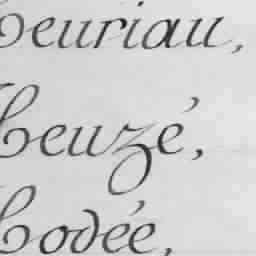 Heuriau,
Heuzé,
Hodée,